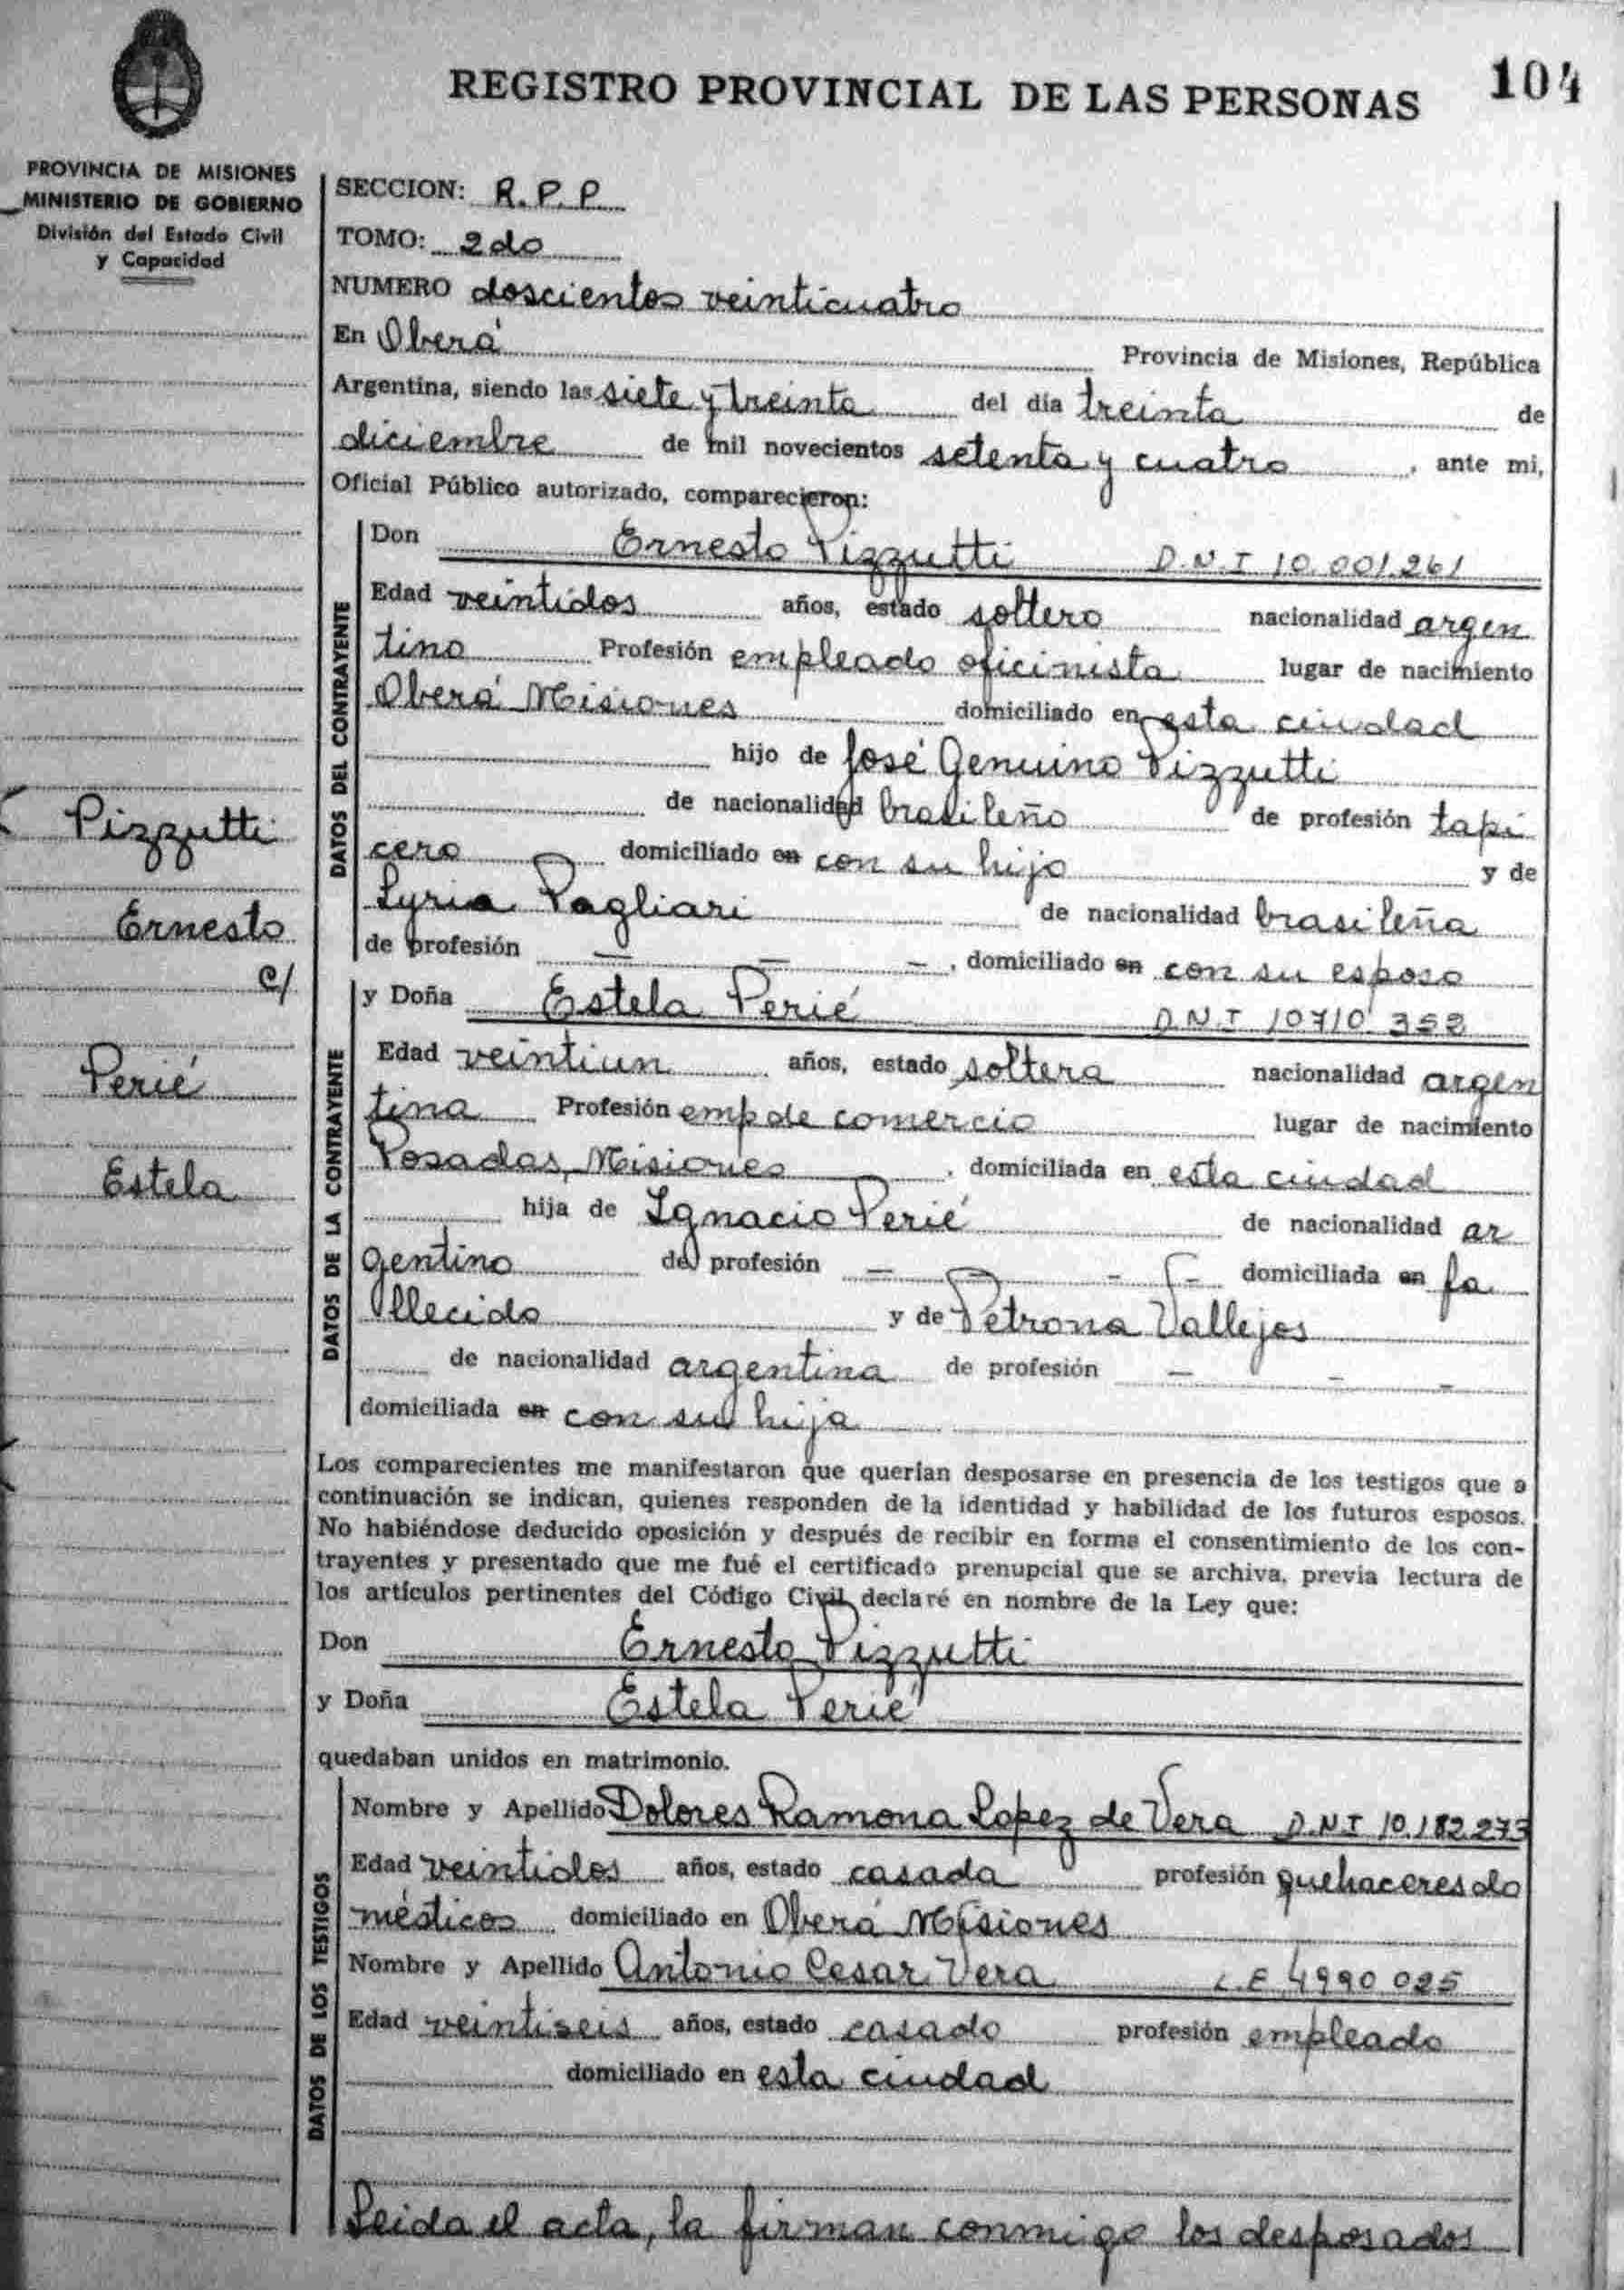 REGISTRO PROVINCIAL DE LAS PERSONAS 104
PROVINCIA DE MISIONES
MINISTERIO DE GOBIERNO
División del Estado Civil
y Capacidad
SECCION: R.P.P.
TOMO: 2do
NUMERO doscientos veinticuatro
En Oberá Provincia de Misiones, República
Argentina, siendo las siete y treinta del día treinta de
diciembre de mil novecientos setenta y cuatro, ante mi,
Oficial Público autorizado, comparecieron:
DATOS DEL CONTRAYENTE
Don Ernesto Pizzutti D.N.I 10.001.261
Edad veintidos años, estado soltero nacionalidad argen
tino Profesión empleado oficinista lugar de nacimiento
Oberá Misiones domiciliado en esta ciudad
hijo de José Genuino Pizzutti
de nacionalidad brasileño de profesión tapi
cero domiciliado en con su hijo y de
Lyria Pagliari de nacionalidad brasileña
de profesión — — —, domiciliado en con su esposo
Pizzutti
Ernesto
c/
Perié
Estela
DATOS DE LA CONTRAYENTE
y Doña Estela Perié D.N.I 10710352
Edad veintiun años, estado soltera nacionalidad argen
tina Profesión emp de comercio lugar de nacimiento
Posadas, Misiones, domiciliada en esta ciudad
hija de Ignacio Perié de nacionalidad ar
gentino de profesión — - - domiciliada en fa
llecido y de Petrona Vallejos
de nacionalidad argentina de profesión — - -
domiciliada en con su hija
Los comparecientes me manifestaron que querían desposarse en presencia de los testigos que a
continuación se indican, quienes responden de la identidad y habilidad de los futuros esposos.
No habiéndose deducido oposición y después de recibir en forma el consentimiento de los con-
trayentes y presentado que me fué el certificado prenupcial que se archiva, previa lectura de
los artículos pertinentes del Código Civil, declaré en nombre de la Ley que:
Don Ernesto Pizzutti
y Doña Estela Perié
quedaban unidos en matrimonio.
DATOS DE LOS TESTIGOS
Nombre y Apellido Dolores Ramona Lopez de Vera D.N.I 10.182.273
Edad veintidos años, estado casada profesión quehaceres do
mésticos domiciliado en Oberá Misiones
Nombre y Apellido Antonio Cesar Vera L.E 4990025
Edad veintiseis años, estado casado profesión empleado
domiciliado en esta ciudad
Leida el acta, la firman conmigo los desposados